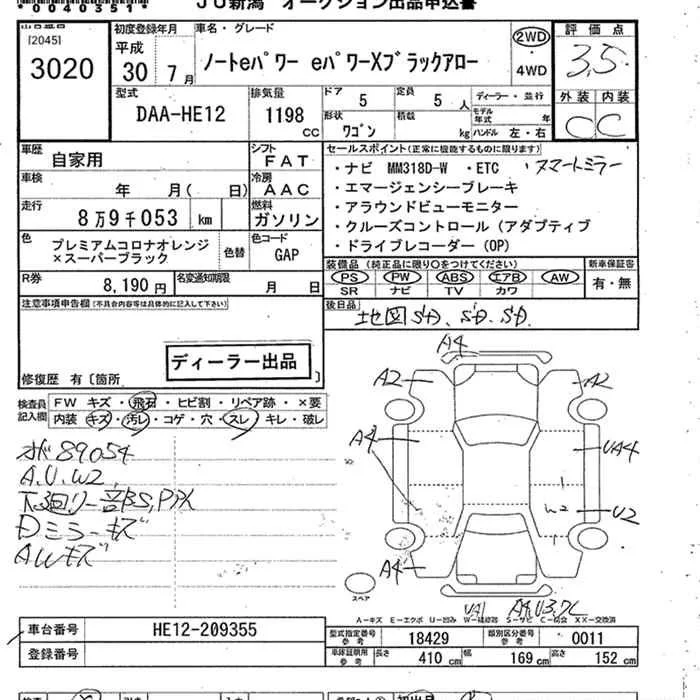 *0040351*
JU新潟 オークション出品申込書
出品番号
[2045]
3020
初度登録年月
平成
30年7月
車名・グレード
ノートeパワー eパワーXブラックアロー
2WD
・
4WD
評価点
3,5
外装 内装
C C
型式
DAA-HE12
排気量
1198
CC
ドア 5
定員 5 人
形状 ワゴン
積載 kg
ディーラー・並行
モデル年式 年
ハンドル 左・右
車歴
自家用
車検
年 月( 日)
走行
8万9千053 km
シフト
FAT
冷房
AAC
燃料
ガソリン
セールスポイント(正常に機能するものに限ります)
・ナビ MM318D-W ・ETC ・スマートミラー
・エマージェンシーブレーキ
・アラウンドビューモニター
・クルーズコントロール(アダプティブ
・ドライブレコーダー(OP)
色
プレミアムコロナオレンジ
×スーパーブラック
色替
色コード
GAP
装備品(純正品に限り○をつけてください)
PS PW ABS エアB AW
SR ナビ TV カワ
新車保証書
有・無
R券
8,190 円
名変通知期限
月 日
後日品
地図SD、SD.SD.
注意事項申告欄(不具合内容等は具体的に記入して下さい)
ディーラー出品
修復歴 有〔箇所 〕
検査員記入欄
FW キズ・飛石・ヒビ割・リペア跡・×要
内装 キズ・汚レ・コゲ・穴・スレ・キレ・破レ
メーター89054
A.U.W2
下廻リ一部S,Pサビ
Dミラーキズ
AWキズ
A4
A2
A2
A4
UA4
W2
U2
A4
UA1
A4,U3,アレ
スペア
A−キズ E−エクボ U−凹み W−補修跡 S−サビ C−腐食 XX−交換済
車台番号
HE12-209355
登録番号
型式指定番号 参考
18429
類別区分番号 参考
0011
車庫証明用 参考
長さ 410 cm
幅 169 cm
高さ 152 cm